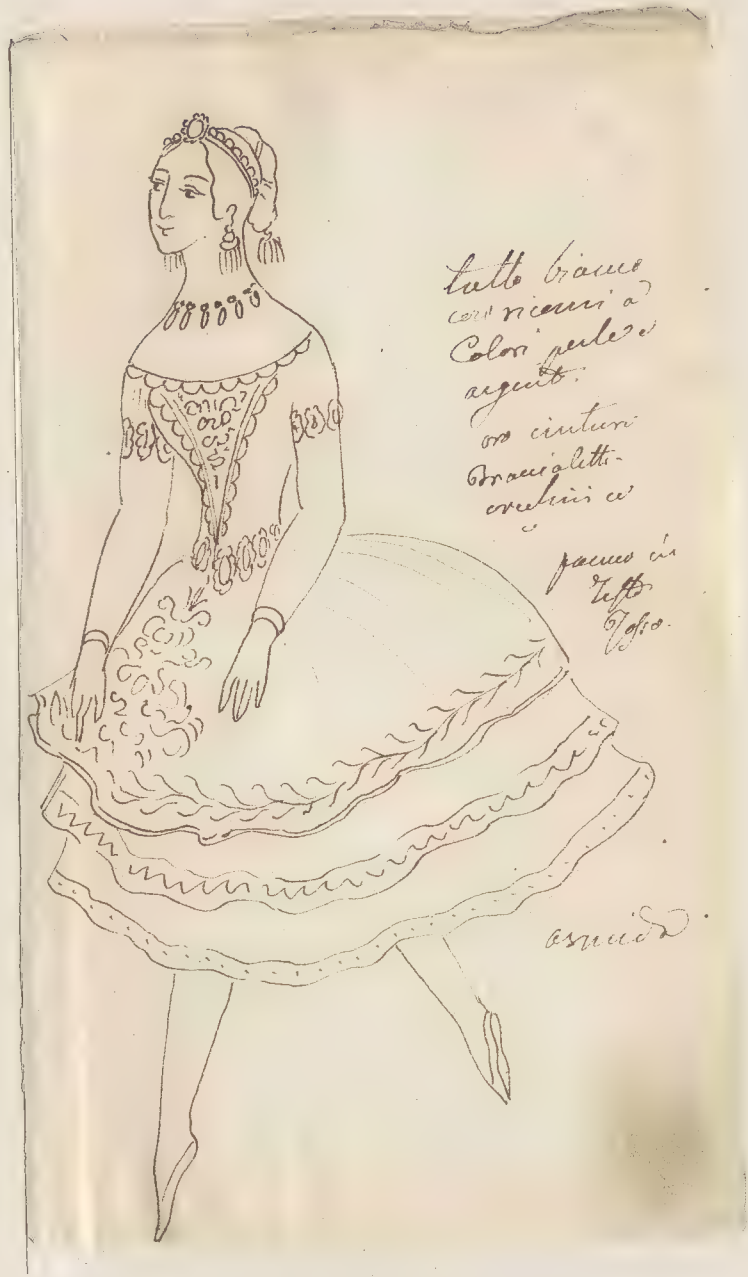 tutto bianco
con ricami a
Colori perle e
argent.
oro cinturi
Braccialetti
orechini e
panno in
testa
Rosso.
armida